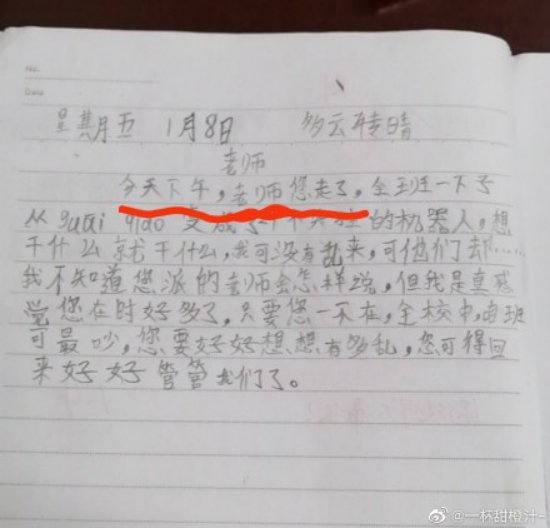 No.
Date
星期五 1月8日 多云转晴
老师
今天下午，老师您走了，全班一下子
从guāi qiǎo变成了 的机器人，想
干什么就干什么，我可没有乱来，可他们却……
我不知道您派的老师会怎样说，但我是真感
觉您在时好多了，只要您一不在，全校中由班
可最吵，您要好好想想有多乱，您可得回
来好好管管我们了。
@一杯甜橙汁-